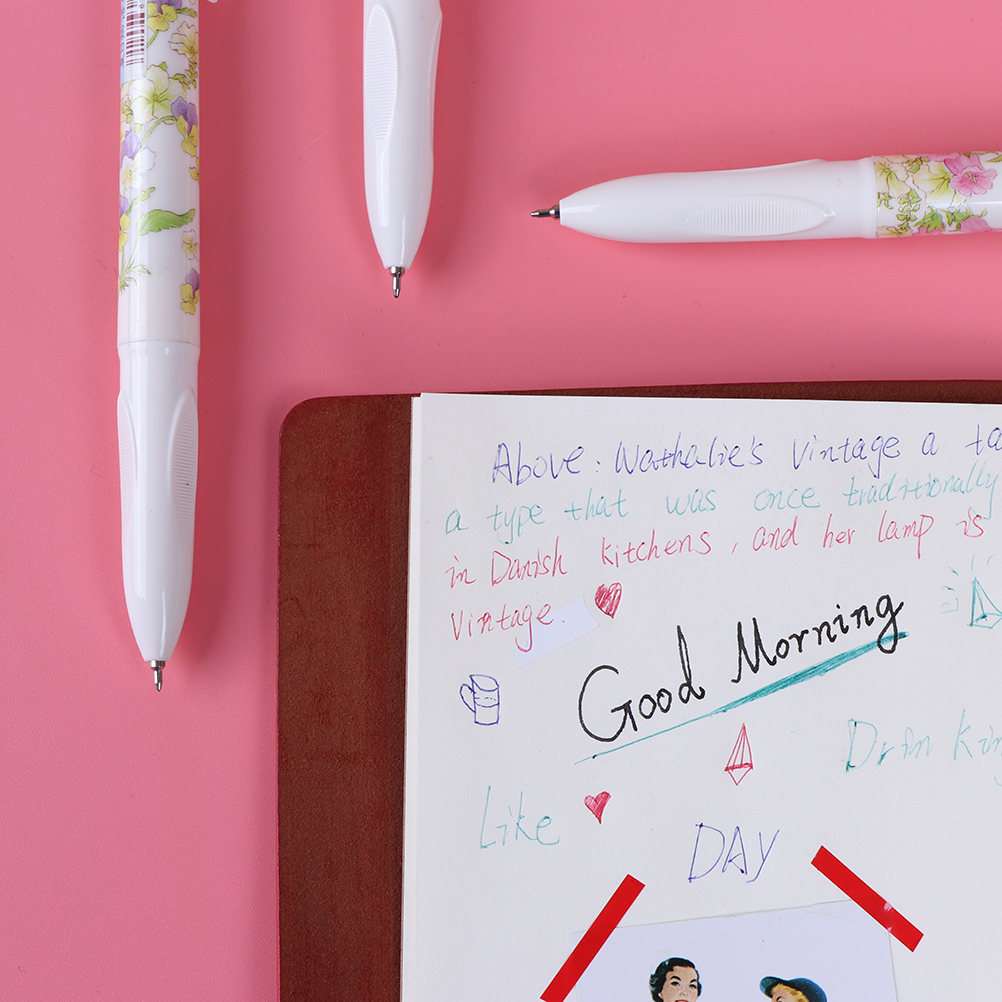 Above: Wathalie's vintage a ta
a type that was once traditionally
in Danish kitchens, and her lamp is
vintage.
Good Morning
Drin Kin
Like
DAY